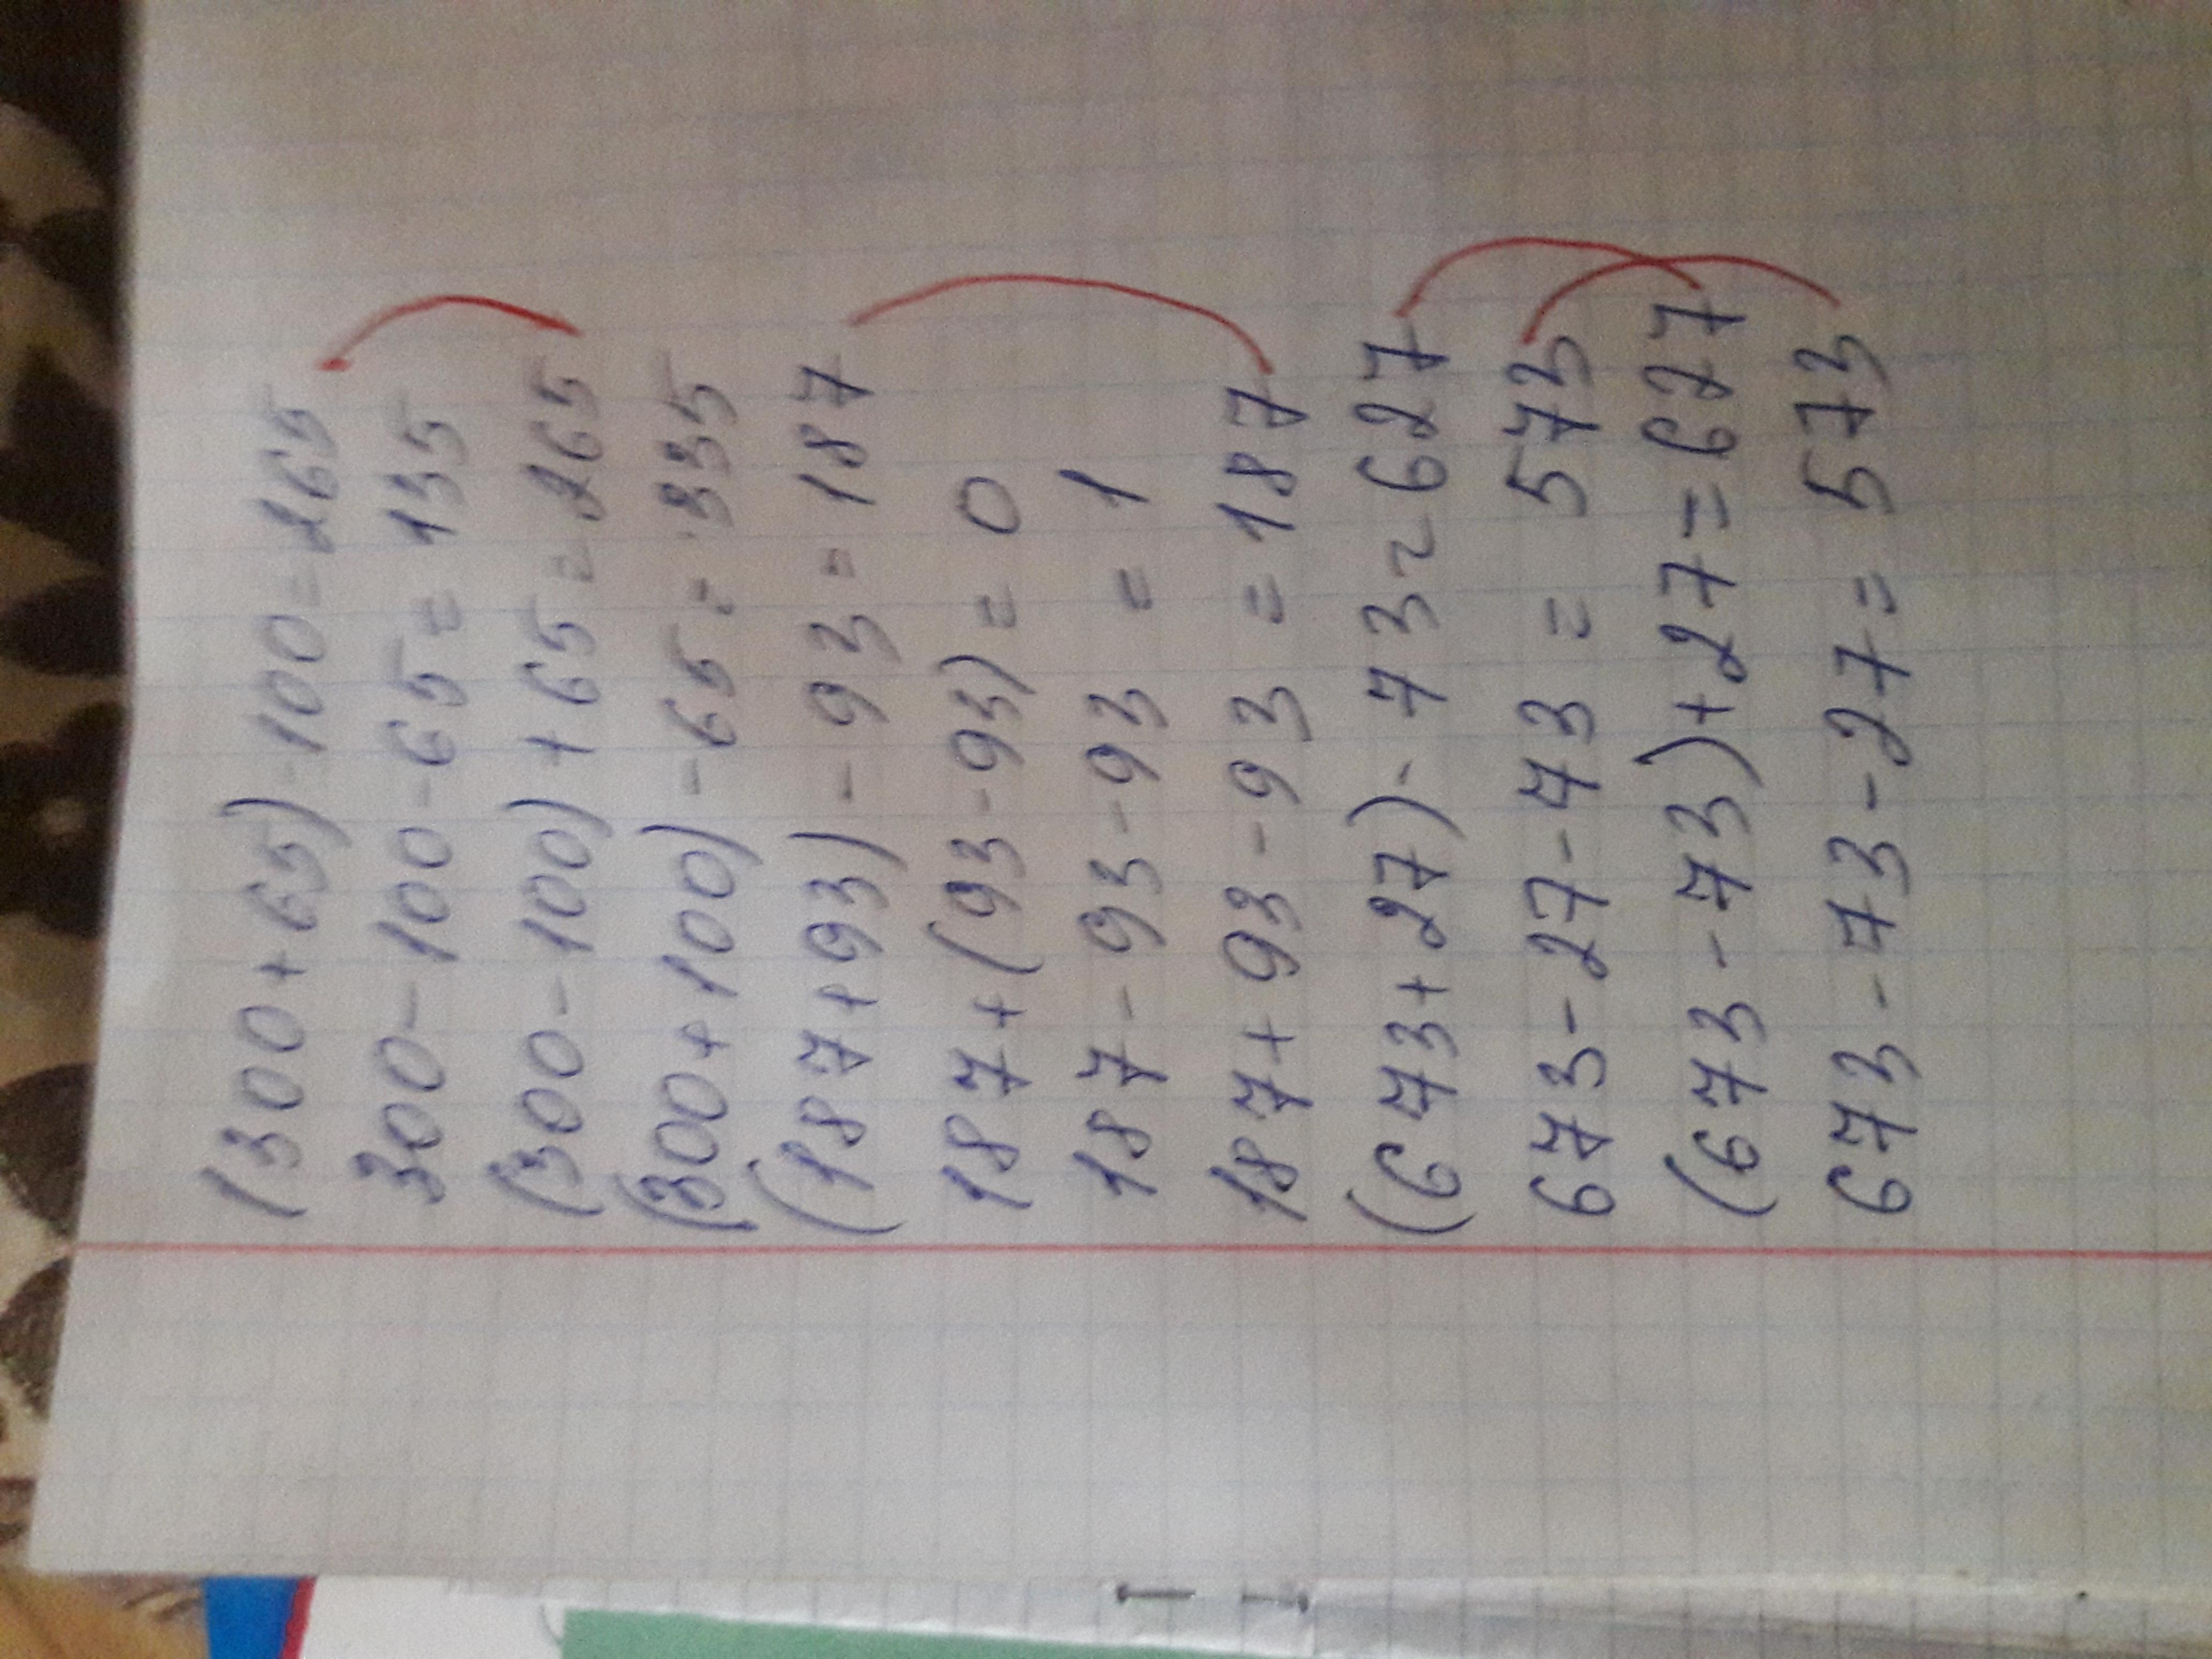 (300+65)-100=265
300-100-65=135
(300-100)+65=265
(300+100)-65=335
(187+93)-93=187
187+(93-93)=0
187-93-93=1
187+93-93=187
(673+27)-73=627
673-27-73=573
(673-73)+27=627
673-73-27=573